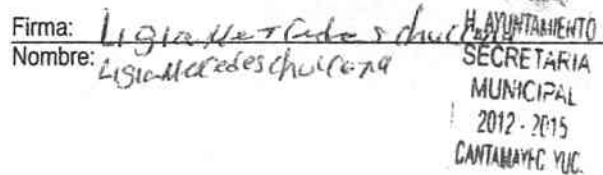 Firma: Ligia Mercedes chuc
Nombre: Ligia Mercedes chuc
H. AYUNTAMIENTO
SECRETARIA
MUNICIPAL
2012 - 2015
CANTAMAYEC YUC.